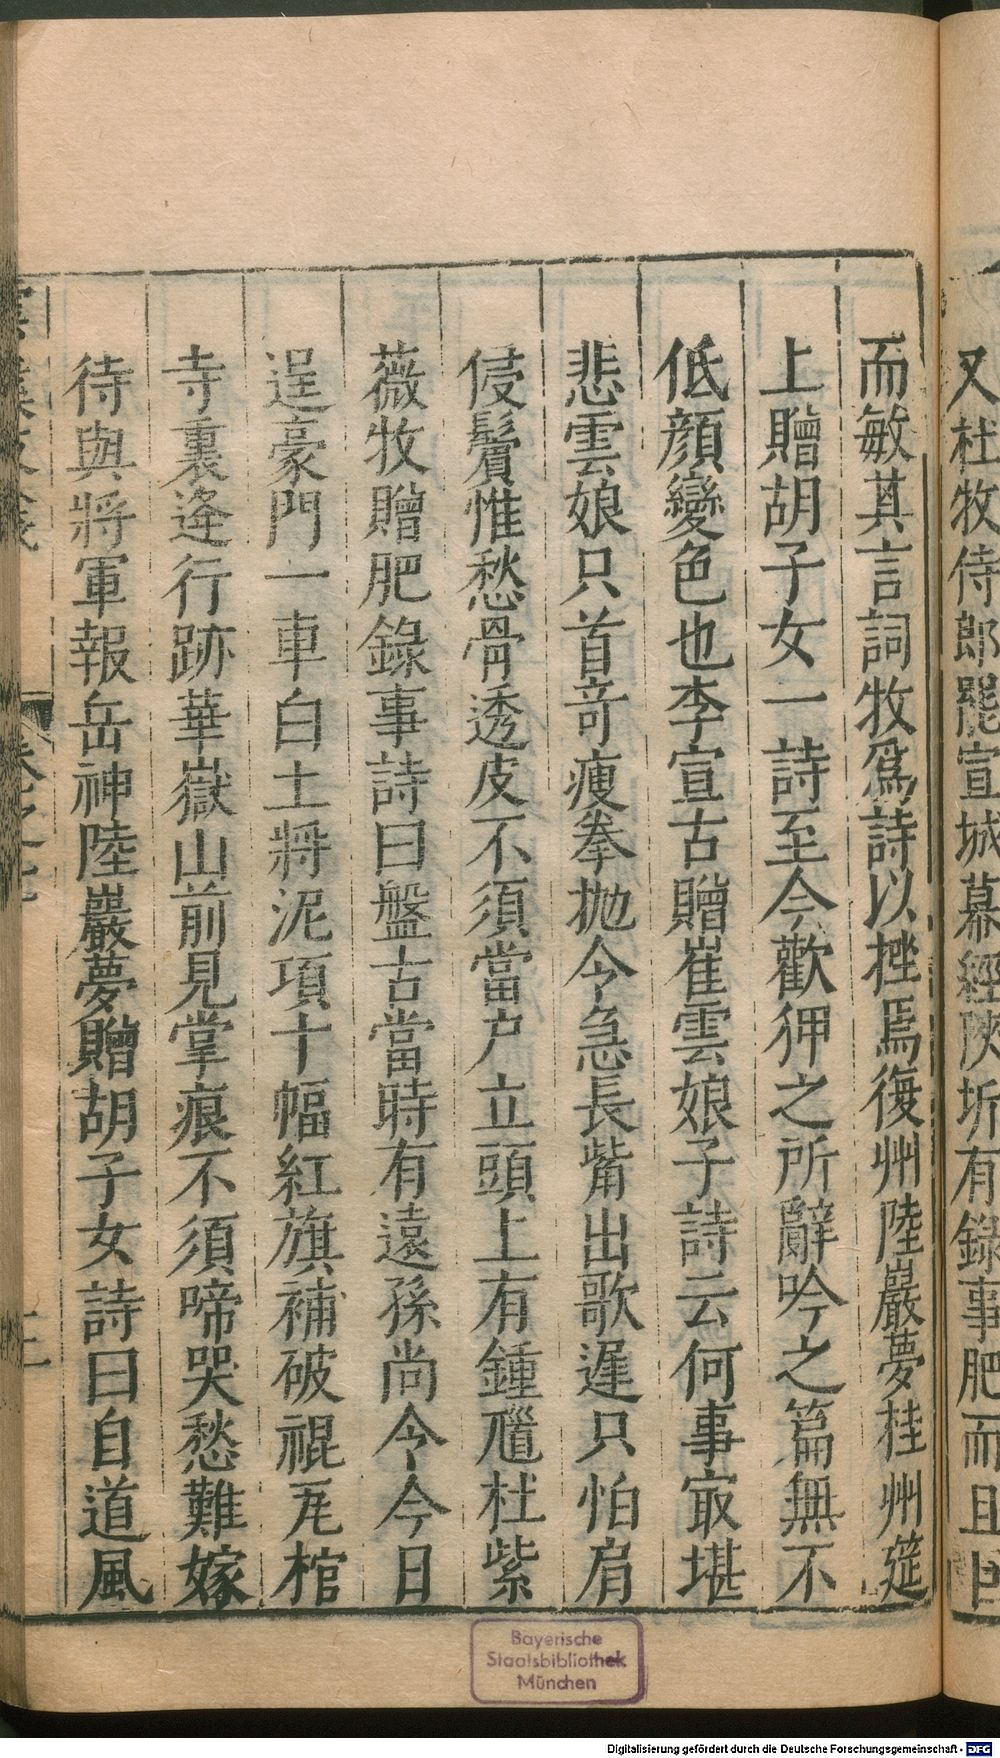 又杜牧侍郎罷宣城幕經陝圻有錄事肥而且
而敏其言詞牧爲詩以挫焉復州陸巖夢桂州筵
上贈胡子女一詩至今歡狎之所辭吟之篇無不
低顏變色也李宣古贈崔雲娘子詩云何事㝡堪
悲雲娘只首竒瘦拳抛令急長觜出歌遲只怕肩
侵鬢惟愁骨透皮不須當户立頭上有鍾馗杜紫
薇牧贈肥錄事詩曰盤古當時有遠孫尚令今日
逞豪門一車白土將泥項十幅紅旗補破裩瓦棺
寺裏逄行跡華嶽山前見掌痕不須啼哭愁難嫁
待與將軍報岳神陸巖夢贈胡子女詩曰自道風
Bayerische
Staatsbibliothek
München
Digitalisierung gefördert durch die Deutsche Forschungsgemeinschaft - DFG